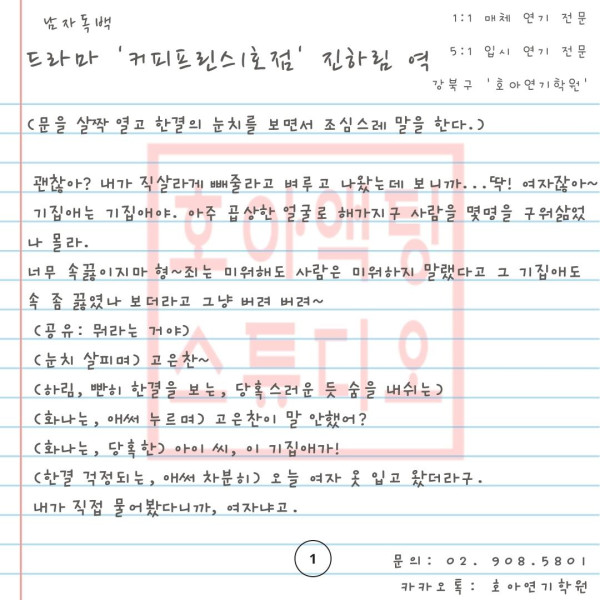 남자독백
1:1 매체 연기 전문
드라마 '커피프린스1호점' 진하림 역
5:1 입시 연기 전문
강북구 '호아연기학원'
(문을 살짝 열고 한결의 눈치를 보면서 조심스레 말을 한다.)
괜찮아? 내가 직살라게 빼줄라고 벼루고 나왔는데 보니까...딱! 여자잖아~
기집애는 기집애야. 아주 곱상한 얼굴로 해가지구 사람을 몇명을 구워삶었
나 몰라.
너무 속끓이지마 형~죄는 미워해도 사람은 미워하지 말랬다고 그 기집애도
속 좀 끓였나 보더라고 그냥 버려 버려~
(공유: 뭐라는 거야)
(눈치 살피며) 고은찬~
(하림, 빤히 한결을 보는, 당혹스러운 듯 숨을 내쉬는)
(화나는, 애써 누르며) 고은찬이 말 안했어?
(화나는, 당혹한) 아이 씨, 이 기집애가!
(한결 걱정되는, 애써 차분히) 오늘 여자 옷 입고 왔더라구.
내가 직접 물어봤다니까, 여자냐고.
호아액팅
스튜디오
1
문의: 02. 908.5801
카카오톡: 호아연기학원